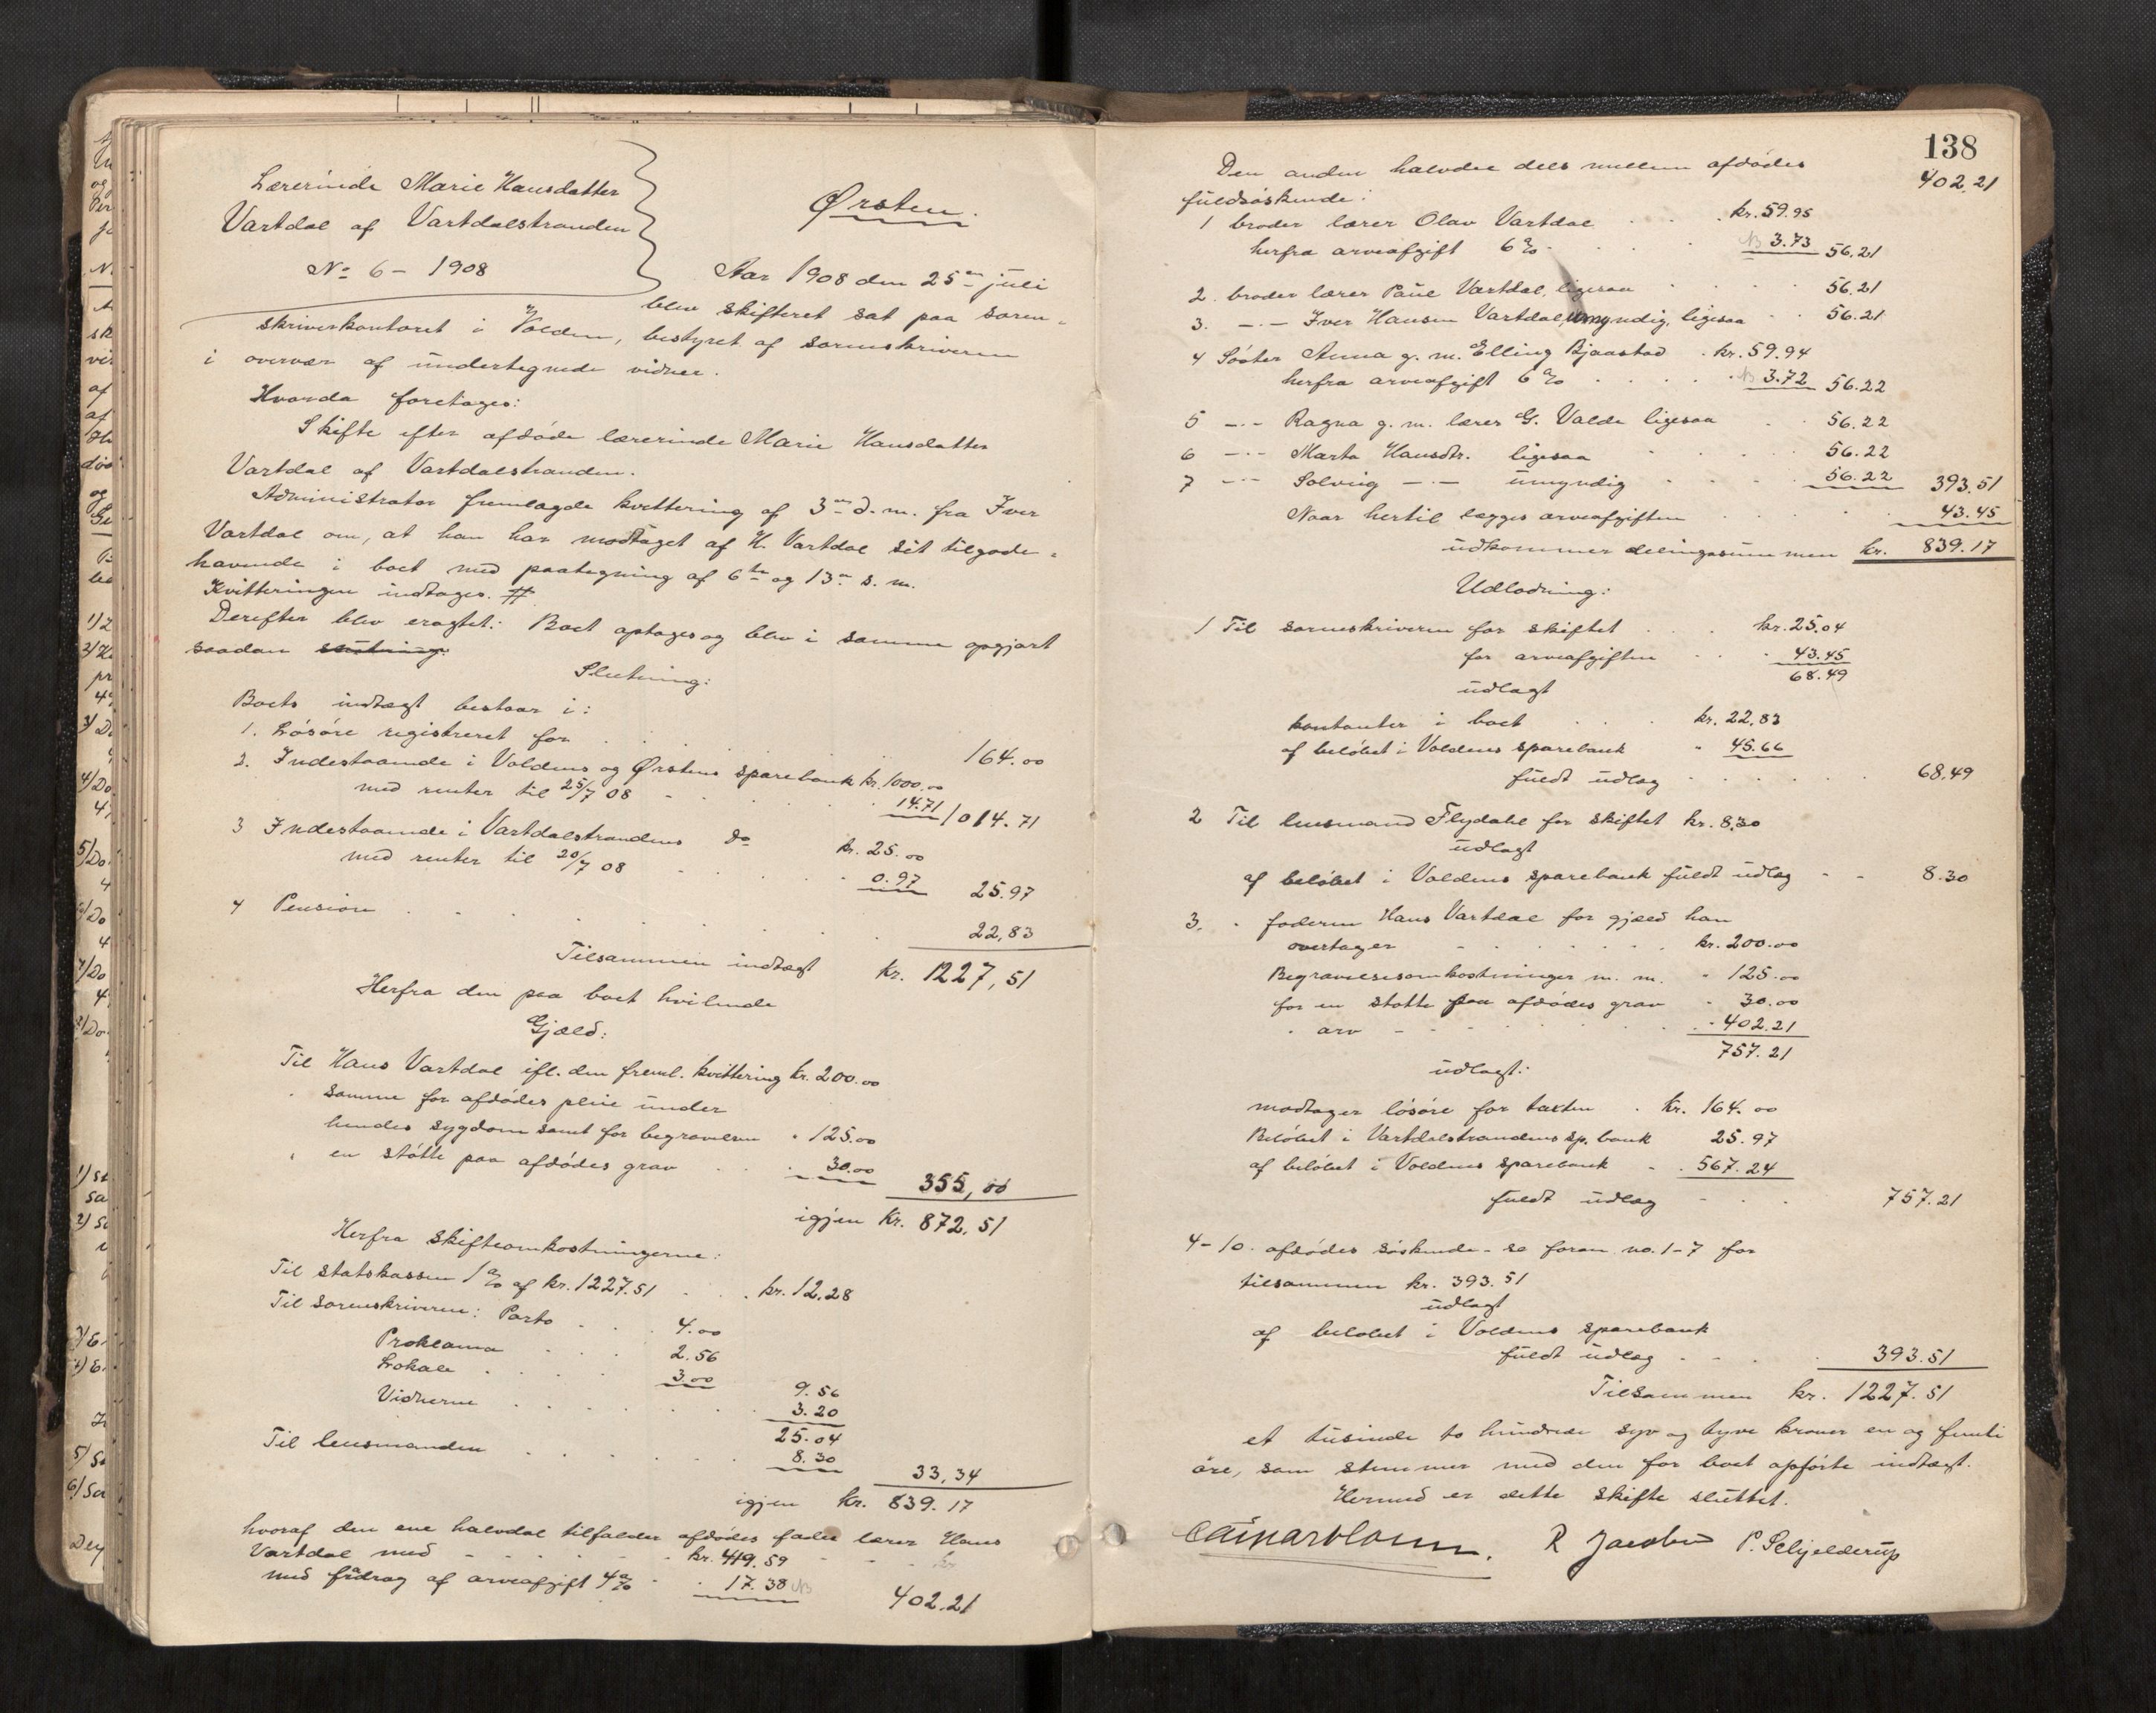 Lærerinde Marie Hansdatter
Vartdal af Vartdalstranden
No 6 - 1908
Ørsten.
Aar 1908 den 25de juli
blev skifteret sat paa soren-
skriverkontoret i Volden, bestyret af sorenskriveren
i overvær af undertegnede vidner.
Hvorda foretages:
Skifte efter afdøde lærerinde Marie Hansdatter
Vartdal af Vartdalstranden.
Administrator fremlagde kvittering af 3die d. m. fra Iver
Vartdal om, at han har modtaget af H. Vartdal sit tilgode-
havende i boet med paategning af 6te og 13de s. m.
Kvitteringen indtages. #
Derefter blev eragtet: Boet optages og blev i samme opgjort
saadan slutning:
Slutning:
Boets indtægt bestaar i:
1. Løsøre registreret for 164.00
2. Indestaaende i Voldens og Ørstens sparebank kr. 1000.00
med renter til 25/7 08 14.71 1014.71
3 Indestaaende i Vartdalstrandens do kr. 25.00
med renter til 20/7 08 0.97 25.97
4 Pension 22,83
Tilsammen indtægt kr. 1227,51
Herfra den paa boet hvilende
Gjæld:
Til Hans Vartdal ifl. den freml. kvittering kr. 200.00
" samme for afdødes pleie under
hendes sygdom samt for begravelsen " 125.00
" en støtte paa afdødes grav 30.00 355,00
igjen Kr. 872,51
Herfra skifteomkostningerne:
Til statskassen 1% af kr. 1227.51 kr. 12.28
Til sorenskriveren: Porto 4.00
Proklama 2.56
Lokale 3.00 9.56
Vidnerne 3.20
25.04
Til lensmanden 8.30 33,34
igjen kr. 839.17
hvoraf den ene halvdel tilfalder afdødes fader lærer Hans
Vartdal med kr. 419.59
med fradrag af arveafgift 4% 17.38 402.21
138
402.21
Den anden halvdel dels mellem afdødes
fuldsøskende:
1 broder lærer Olav Vartdal kr. 59.95
herfra arveafgift 6% 3.73 56.21
2. broder lærer Paul Vartdal, ligesaa 56.21
3. -"- Iver Hansen Vartdal, umyndig, ligesaa 56.21
4 Søster Anna g. m. Elling Bjaastad kr. 59.94
herfra arveafgift 6% 3.72 56.22
5 -"- Ragna g. m. lærer G. Valde ligesaa 56.22
6 -"- Marta Hansdtr. ligesaa 56.22
7 -"- Solveig -"- umyndig 56.22 393.51
Naar hertil lægges arveafgiften 43.45
udkommer delingssummen kr. 839.17
Udlodning:
1 Til sorenskriveren for skiftet kr. 25.04
for arveafgiften 43.45
68.49
udlagt
kontanter i boet kr. 22,83
af beløbet i Voldens sparebank " 45.66
fuldt udlæg 68.49
2 Til lensmand Flydahl for skiftet kr. 8.30
udlagt
af beløbet i Voldens sparebank fuldt udlæg 8.30
3. " faderen Hans Vartdal for gjæld han
overtager kr. 200.00
Begravelsesomkostninger m. m. " 125.00
for en støtte paa afdødes grav " 30.00
" arv 402.21
757.21
udlagt:
modtager løsøre for taxten kr. 164.00
Beløbet i Vartdalstrandens sp. bank 25.97
af beløbet i Voldens sparebank 567.24
fuldt udlæg 757.21
4-10. afdødes søskende - se foran no. 1-7 for
tilsammen kr. 393.51
udlagt
af beløbet i Voldens sparebank
fuldt udlæg 393.51
Tilsammen kr. 1227.51
et tusinde to hundrede syv og tyve kroner en og femti
øre, som stemmer med den for boet opførte indtægt.
Hermed er dette skifte sluttet.
R Jacobsen P. Schjelderup